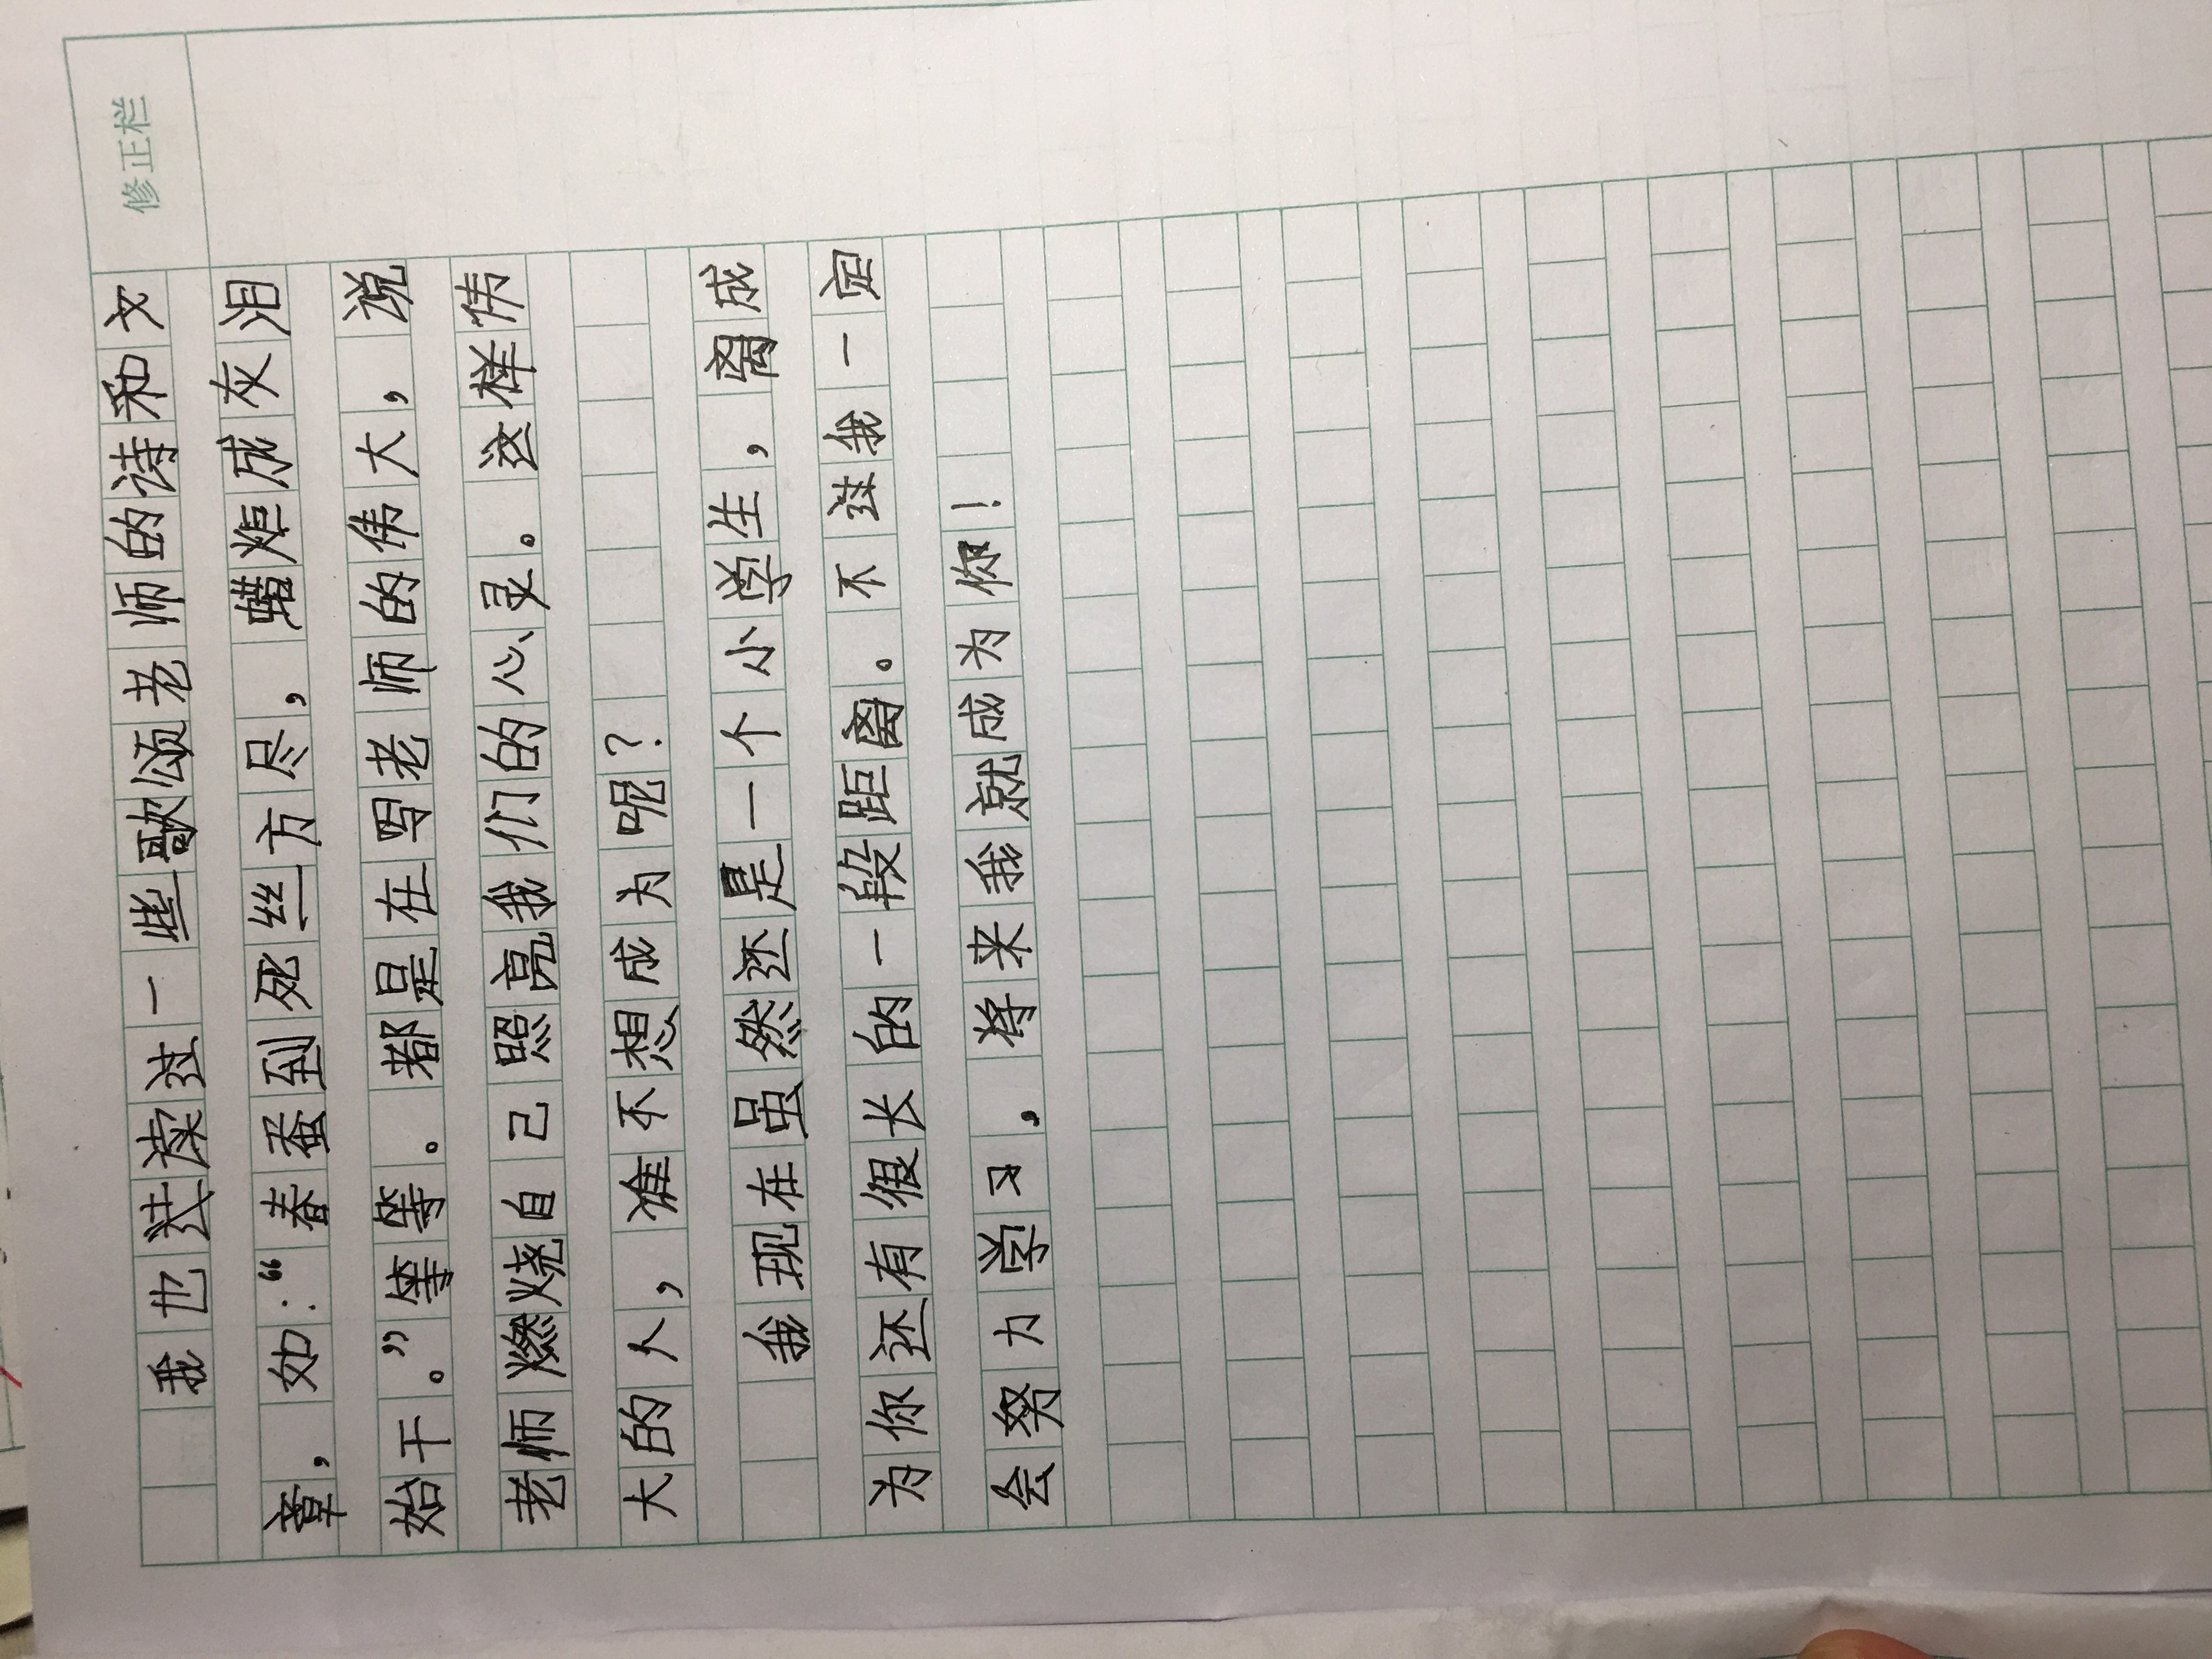 修正栏
我也读过一些歌颂老师的诗和文
章，如：“春蚕到死丝方尽，蜡炬成灰泪
始干。”等等。都是在写老师的伟大，说
老师燃烧自己照亮我们的心灵。这样伟
大的人，谁不想成为呢？
我现在虽然还是一个小学生，离成
为你还有很长的一段距离。不过我一定
会努力学习，将来我就成为你！